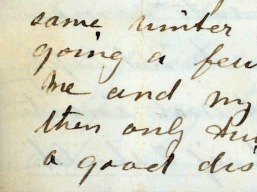 same winter
going a few
me and my
then only
a good dis